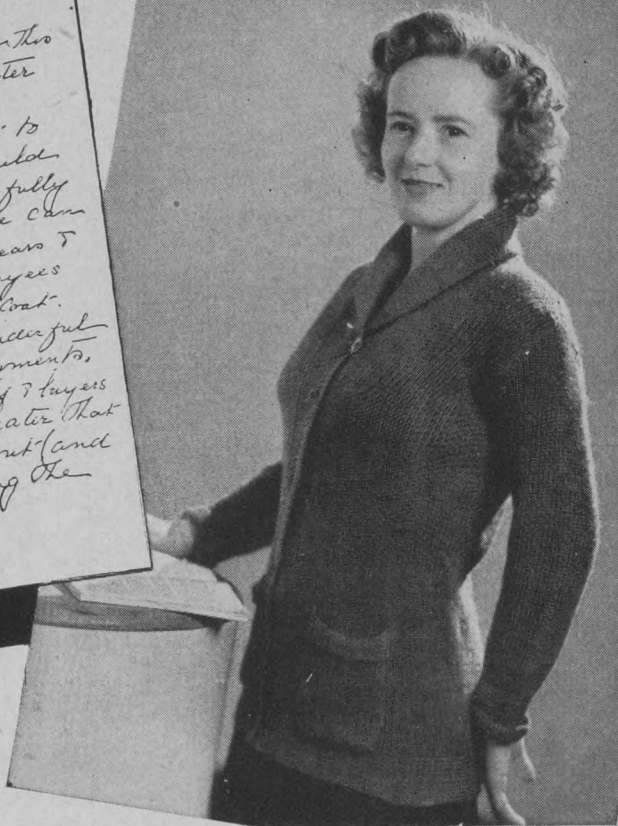 this
ter
to
uld
fully
e can
ears &
yees
Coat.
nderful
ments.
of & buyers
eater that
out (and
g the